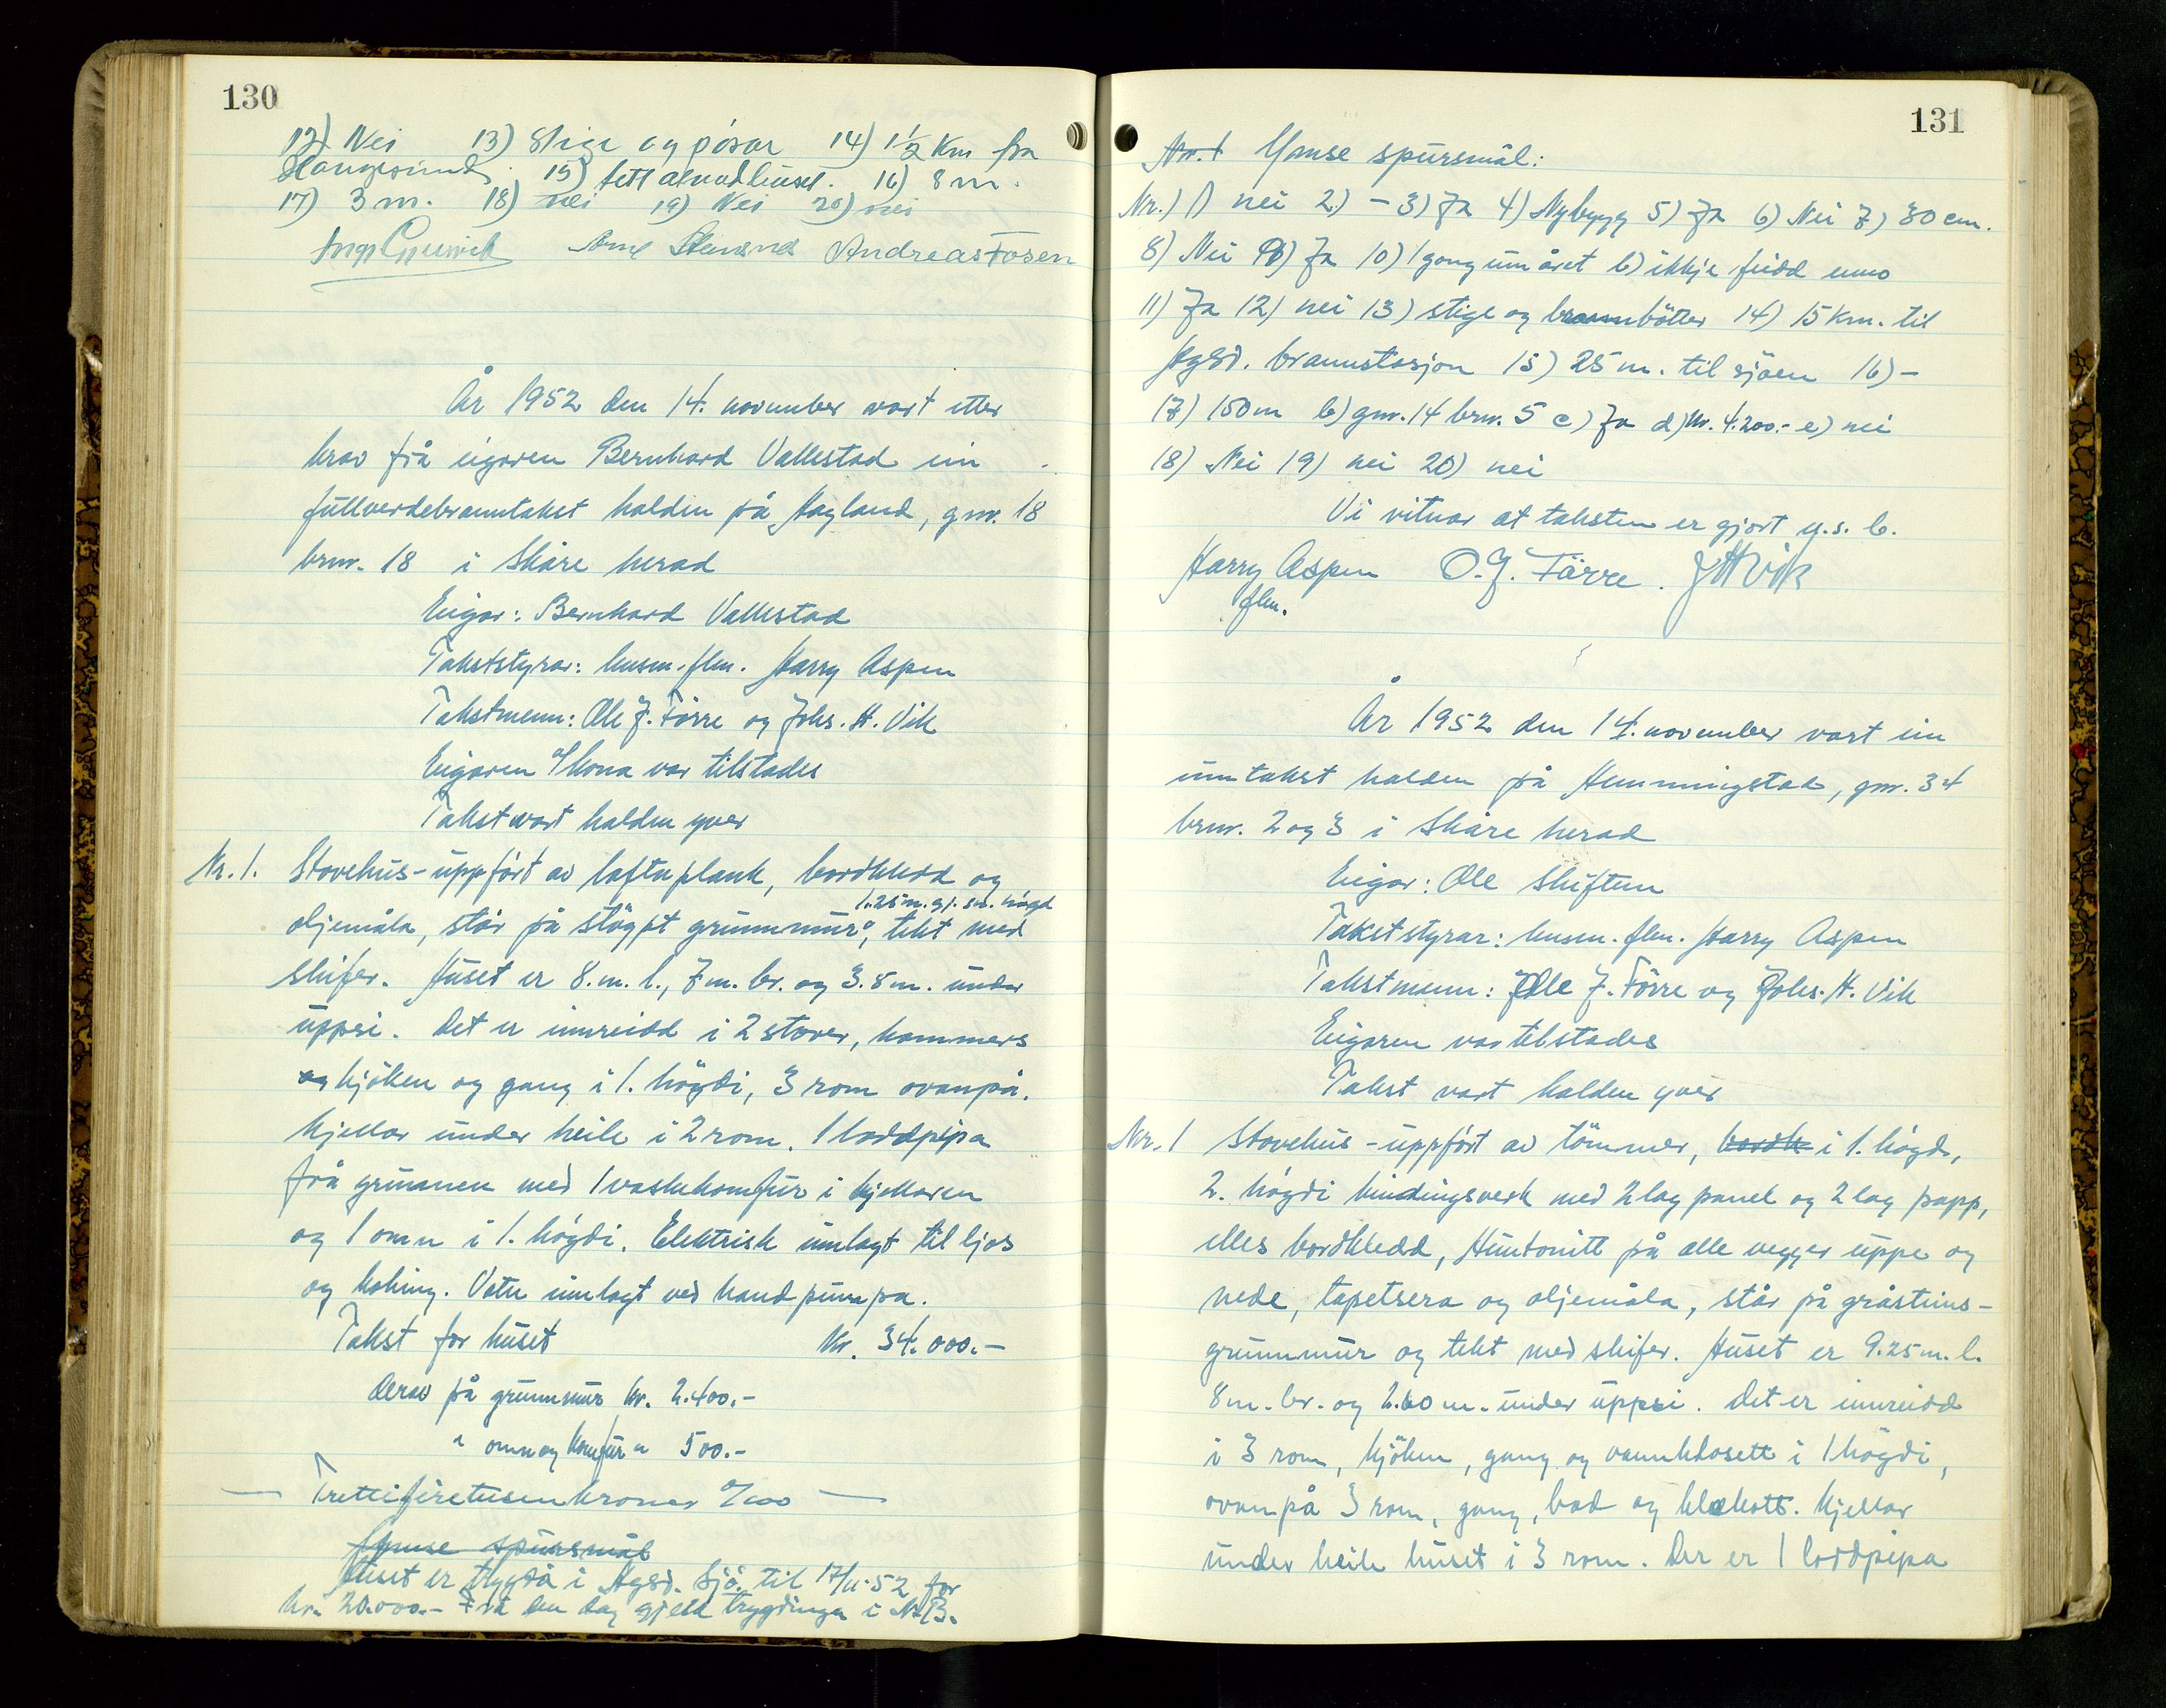 130
12) Nei 13) Stige og pósar 14) 1½ Km fra
Haugesund. 15) tett atmed huset. 16) 8 m.
17) 3 m. 18) nei 19) Nei 20) nei
Andreas Fosen
År 1952 den 14. november vart etter
krav frå eigaren Bernhard Vallestad ein
fullverdebranntakst halden på Hagland, gnr. 18
bnr. 18 i Skåre herad
Eigar: Bernhard Vallestad
Takststyrar: lensm.flm. Harry Aspen
Takstmenn: Ole J. Förre og Johs. H. Vik
Eigaren s/kona var tilstades
Takst vart halden yver
Nr. 1. Stovehus - uppfört av lafta plank, bordkledd og
1.25 m. gj.sn. högd
oljemåla, står på stöypt grunnmur, tekt med
skifer. Huset er 8. m. l., 7 m. br. og 3.8 m. under
uppsi. Det er innreidd i 2 stover, kammers
og kjöken og gang i 1. högdi, 3 rom ovanpå.
Kjellar under heile i 2 rom. 1 loddpipa
frå grunnen med 1 vaskekomfur i kjellaren
og 1 omn i 1. högdi. Elektrisk innlagt til ljos
og koking. Vatn innlagt ved hand pumpa.
Takst for huset Kr. 34.000.-
Derav på grunnmur kr. 2.400.-
" omn og komfur " 500.-
— Trettifiretusenkroner 0/100 —
Ymse spursmål
Huset er trygda i Hgsd. Sjö. til 17/11-52 for
kr. 20.000.- Frå den dag gjeld trygdinga i N.B.
131
Nr. 1 Ymse spursmål:
Nr. 1) 1) nei 2) - 3) Ja 4) Nybygg 5) Ja 6) Nei 7) 30 cm.
8) Nei 9) Ja 10) 1 gong um året b) ikkje feidd enno
11) Ja 12) nei 13) stige og brannbötter 14) 15 km. til
Hgsd. brannstasjon 15) 25 m. til sjöen 16) -
17) 150 m b) gnr. 14 bnr. 5 c) Ja d) Kr. 4.200.- e) nei
18) Nei 19) nei 20) nei
Vi vitnar at taksten er gjort u.s. b.
Harry Aspen O. J. Förre. J H Vik
flm.
År 1952 den 14. november vart ein
umtakst halden på Hemmingstad, gnr. 34
bnr. 2 og 3 i Skåre herad
Eigar: Ole Skiftun
Takststyrar: lensm. flm. Harry Aspen
Takstmenn: Ole J. Förre og Johs. H. Vik
Eigaren var tilstades
Takst vart halden yver
Nr. 1 Stovehus - uppfört av tömmer, bordk i 1. högd,
2. högdi bindingsverk med 2 lag panel og 2 lag papp,
elles bordkledd, Huntonitt på alle vegger uppe og
nede, tapetsera og oljemåla, står på gråsteins-
grunnmur og tekt med skifer. Huset er 9.25 m. l.
8 m. br. og 2.60 m. under uppsi. Det er innreidd
i 3 rom, kjöken, gang og vannklosett i 1 högdi,
ovanpå 3 rom, gang, bad og klekott. Kjellar
under heile huset i 3 rom. Der er 1 loddpipa